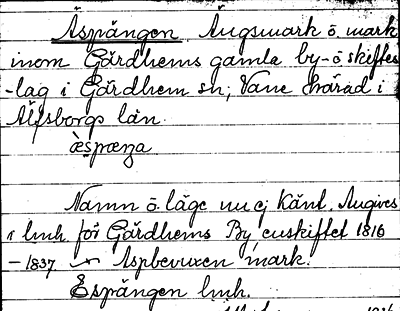 Äspängen Ängsmark o. mark
inom Gärdhems gamla by- o skiftes
-lag i Gärdhem sn, Väne härad i
Älfsborgs län.
æspæŋa
Namn o läge nu ej känt. Angives
i lmh. för Gärdhems By, enskiftet 1816
-1837. Aspbevuxen mark.
Espängen lmh.